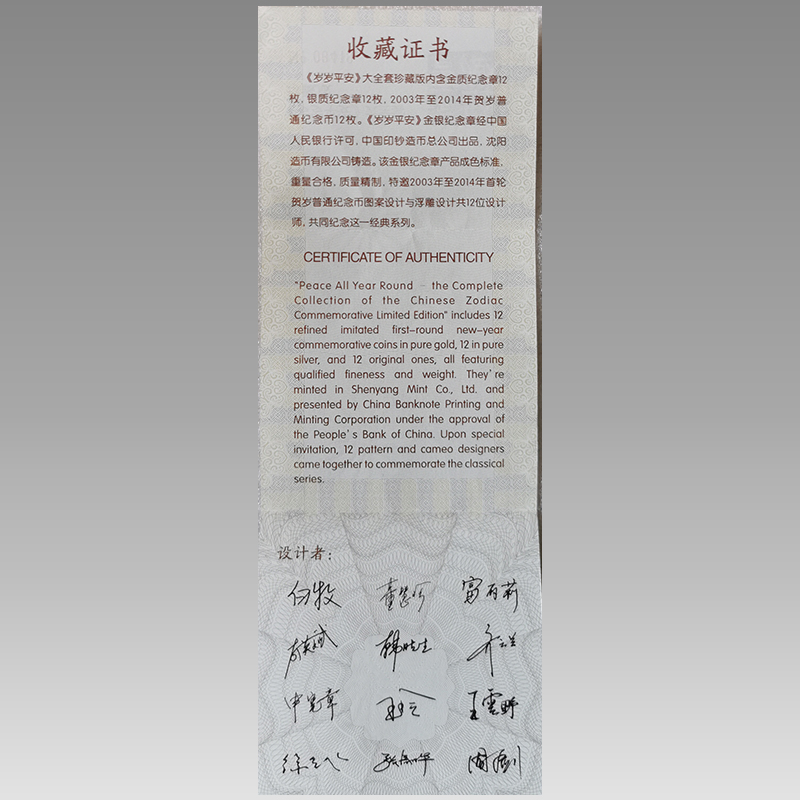 收藏证书
《岁岁平安》大全套珍藏版内含金质纪念章12
枚，银质纪念章12枚，2003年至2014年贺岁普
通纪念币12枚。《岁岁平安》金银纪念章经中国
人民银行许可，中国印钞造币总公司出品，沈阳
造币有限公司铸造。该金银纪念章产品成色标准，
重量合格，质量精制，特邀2003年至2014年首轮
贺岁普通纪念币图案设计与浮雕设计共12位设计
师，共同纪念这一经典系列。
CERTIFICATE OF AUTHENTICITY
"Peace All Year Round – the Complete
Collection of the Chinese Zodiac
Commemorative Limited Edition" includes 12
refined imitated first-round new-year
commemorative coins in pure gold, 12 in pure
silver, and 12 original ones, all featuring
qualified fineness and weight. They're
minted in Shenyang Mint Co., Ltd. and
presented by China Banknote Printing and
Minting Corporation under the approval of
the People's Bank of China. Upon special
invitation, 12 pattern and cameo designers
came together to commemorate the classical
series.
设计者：
白牧 董慧珂 富百莉
韩晓生 齐云兰
王雪野
周剑